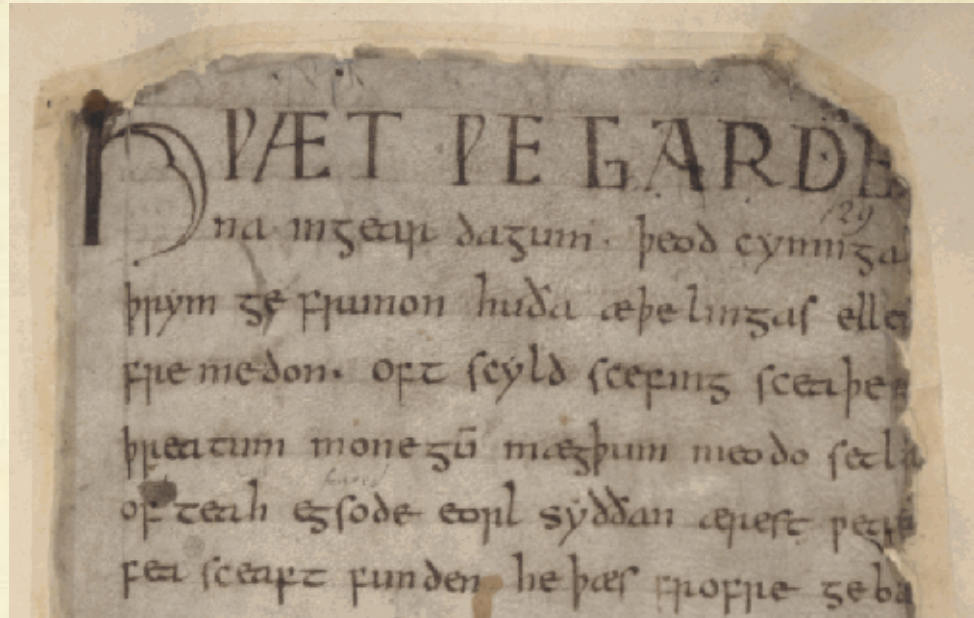 HǷÆT ǷE GARDE
129
na ingear dagum. þeod cyninga
þrym ge frunon huða æþelingas elle
fremedon. oft scyld scefing sceaþe
þreatum monegū mægþum meodo setla
of teah egsode eorl syððan ærest
fea sceaft funden he þæs frofre geba